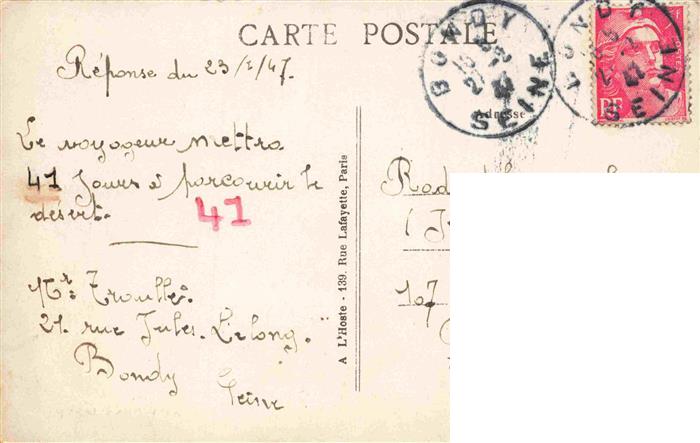 CARTE POSTALE
BONDY
SEINE
BONDY
SEINE
Réponse du 23/1/47.
Adresse
Le voyageur mettra
41 jours à parcourir le
désert.
41
Mr
21. rue Jules. Lelong.
Bondy
Seine
A L'Hoste - 139. Rue Lafayette, Paris
107